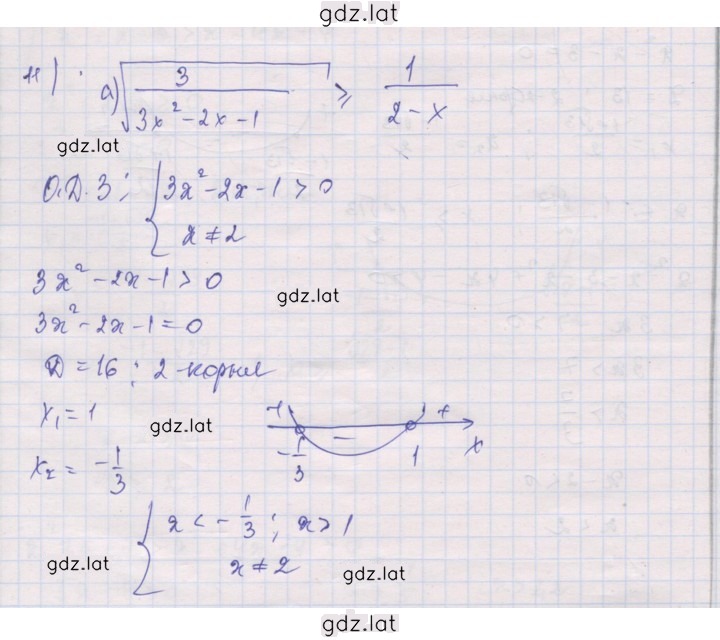 gdz.lat
11) a) √(3/(3x² - 2x - 1)) ≥ 1/(2 - x)
gdz.lat
О.Д.З: { 3x² - 2x - 1 > 0
x ≠ 2
3x² - 2x - 1 > 0
gdz.lat
3x² - 2x - 1 = 0
D = 16; 2 корня
x₁ = 1
gdz.lat
+ - + x
-1/3 1
x₂ = -1/3
{ x < -1/3; x > 1
gdz.lat
x ≠ 2
gdz.lat
gdz.lat